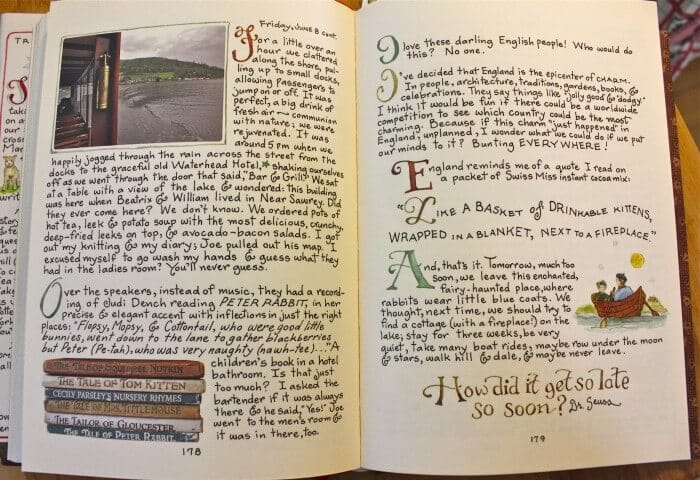 Friday, JUNE 8 cont.
For a little over an
hour we clattered
along the shore, pul-
ling up to small docks,
allowing passengers to
jump on or off. It was
perfect, a big drink of
fresh air — communion
with nature; we were
rejuvenated. It was
around 5 pm when we
happily jogged through the rain across the street from the
docks to the graceful old Waterhead Hotel, shaking ourselves
off as we went through the door that said, "Bar & Grill." We sat
at a table with a view of the lake & wondered: this building
was here when Beatrix & William lived in Near Sawrey. Did
they ever come here? We don't know. We ordered pots of
hot tea, leek & potato soup with the most delicious, crunchy,
deep-fried leeks on top, & avocado-bacon salads. I got
out my knitting & my diary; Joe pulled out his map. I
excused myself to go wash my hands & guess what they
had in the ladies room? You'll never guess.
Over the speakers, instead of music, they had a record-
ing of Judi Dench reading PETER RABBIT, in her
precise & elegant accent with inflections in just the right
places: "Flopsy, Mopsy, & Cottontail, who were good little
bunnies, went down to the lane to gather blackberries
but Peter (Pe-tah), who was very naughty (naw-tee)..." A
children's book in a hotel
bathroom. Is that just
too much? I asked the
bartender if it was always
there & he said, "Yes!" Joe
went to the men's room &
it was in there, too.
THE TALE OF SQUIRREL NUTKIN
THE TALE OF TOM KITTEN
CECILY PARSLEY'S NURSERY RHYMES
THE TALE OF MRS. TITTLEMOUSE
THE TAILOR OF GLOUCESTER
THE TALE OF PETER RABBIT
178
I love these darling English people! Who would do
this? No one.
I've decided that England is the epicenter of CHARM.
In people, architecture, traditions, gardens, books, &
celebrations. They say things like "jolly good" & "dodgy."
I think it would be fun if there could be a worldwide
competition to see which country could be the most
charming. Because if this charm "just happened" in
England, unplanned, I wonder what we could do if we put
our minds to it? Bunting EVERYWHERE!
England reminds me of a quote I read on
a packet of Swiss Miss instant cocoa mix:
"LIKE A BASKET OF DRINKABLE KITTENS,
WRAPPED IN A BLANKET, NEXT TO A FIREPLACE."
And, that's it. Tomorrow, much too
soon, we leave this enchanted,
fairy-haunted place, where
rabbits wear little blue coats. We
thought, next time, we should try to
find a cottage (with a fireplace!) on the
lake; stay for three weeks, be very
quiet, take many boat rides, maybe row under the moon
& stars, walk hill & dale, & maybe never leave.
How did it get so late
so soon? Dr. Seuss
179